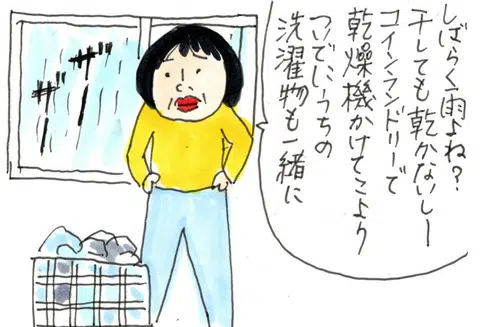 しばらく雨よね?
干しても乾かないしー
コインランドリーで
乾燥機かけてこより
ついでにうちの
洗濯物も一緒に
ザー
ザー